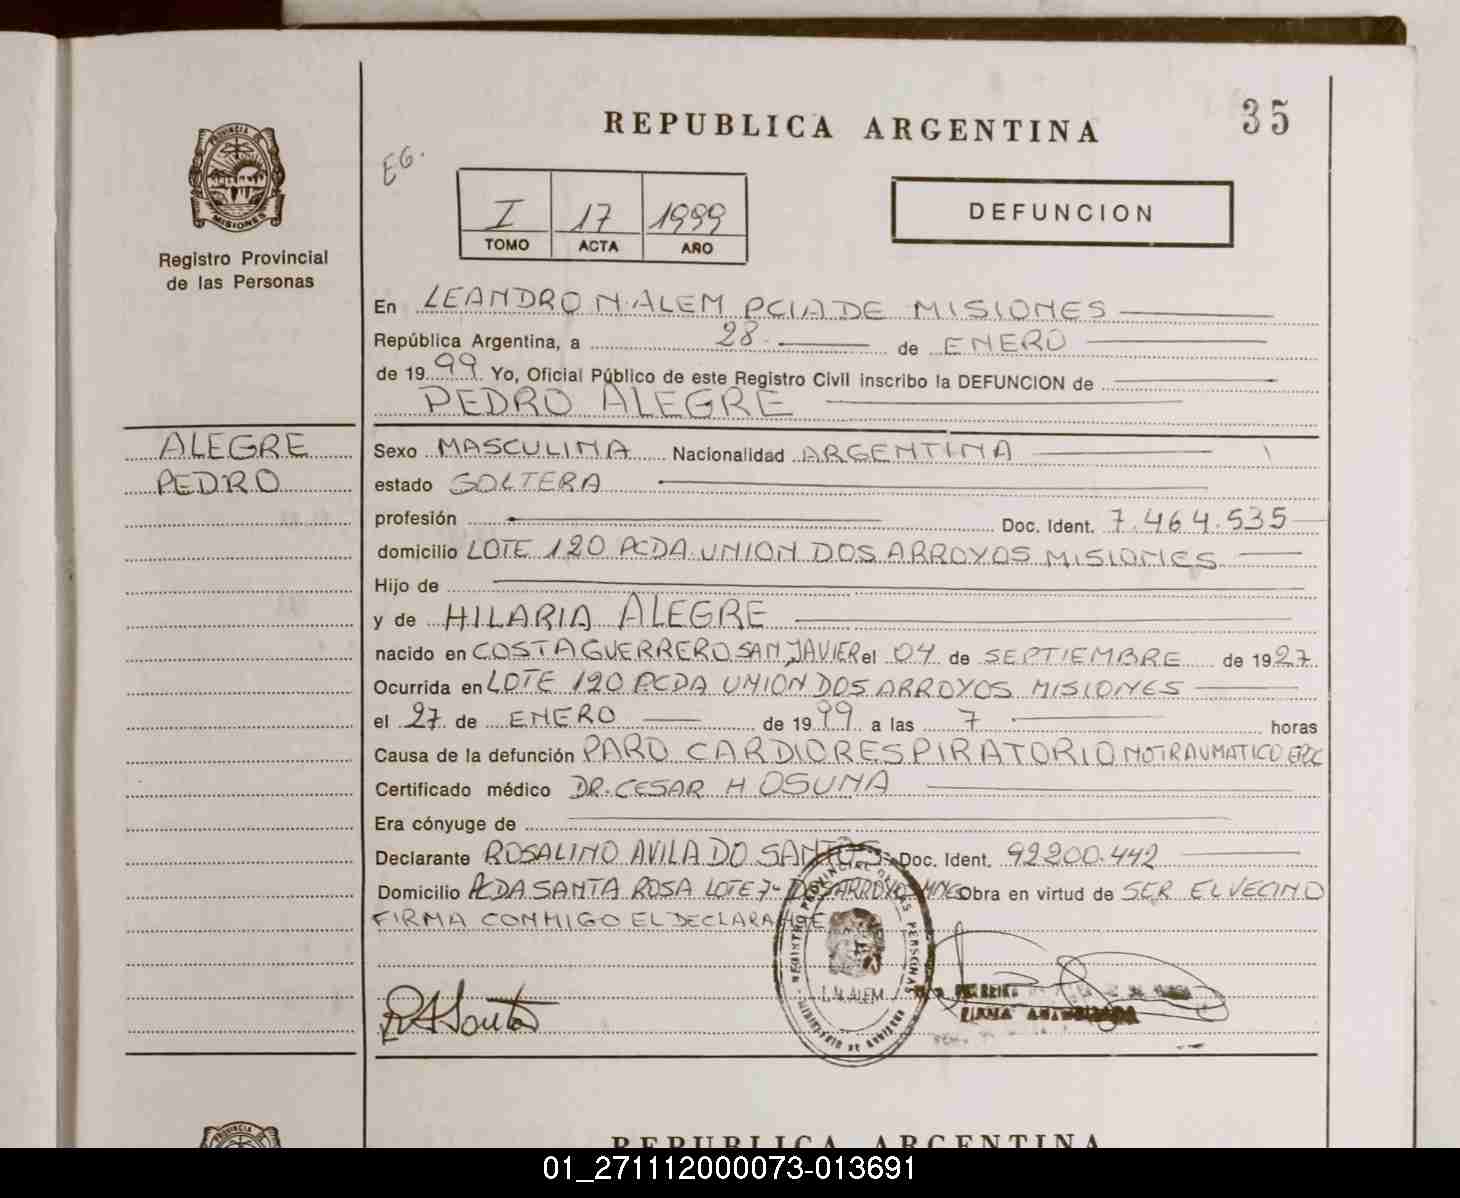 REPUBLICA ARGENTINA
35
EG.
I 17 1999
TOMO ACTA AÑO
DEFUNCION
PROVINCIA DE
MISIONES
Registro Provincial
de las Personas
En LEANDRO N. ALEM PCIA DE MISIONES
República Argentina, a 28 de ENERO
de 1999 Yo, Oficial Público de este Registro Civil inscribo la DEFUNCION de
PEDRO ALEGRE
ALEGRE
PEDRO
Sexo MASCULINA Nacionalidad ARGENTINA
estado SOLTERA
profesión Doc. Ident. 7.464.535
domicilio LOTE 120 PCDA UNION DOS ARROYOS MISIONES
Hijo de
y de HILARIA ALEGRE
nacido en COSTA GUERRERO SAN JAVIER el 04 de SEPTIEMBRE de 1927
Ocurrida en LOTE 120 PCDA UNION DOS ARROYOS MISIONES
el 27 de ENERO de 1999 a las 7 horas
Causa de la defunción PARO CARDIORESPIRATORIO NO TRAUMATICO EPOC
Certificado médico DR. CESAR H OSUNA
Era cónyuge de
Declarante ROSALINO AVILA DO SANTOS Doc. Ident. 92200.442
Domicilio PCDA SANTA ROSA LOTE 7- DOS ARROYOS MNES Obra en virtud de SER EL VECINO
FIRMA CONMIGO EL DECLARANTE
REGISTRO PROVINCIAL DE LAS PERSONAS
L.N. ALEM
MINISTERIO DE GOBIERNO
RA Santos
FIRMA AUTORIZADA
REPUBLICA ARGENTINA
PROVINCIA DE
01_271112000073-013691